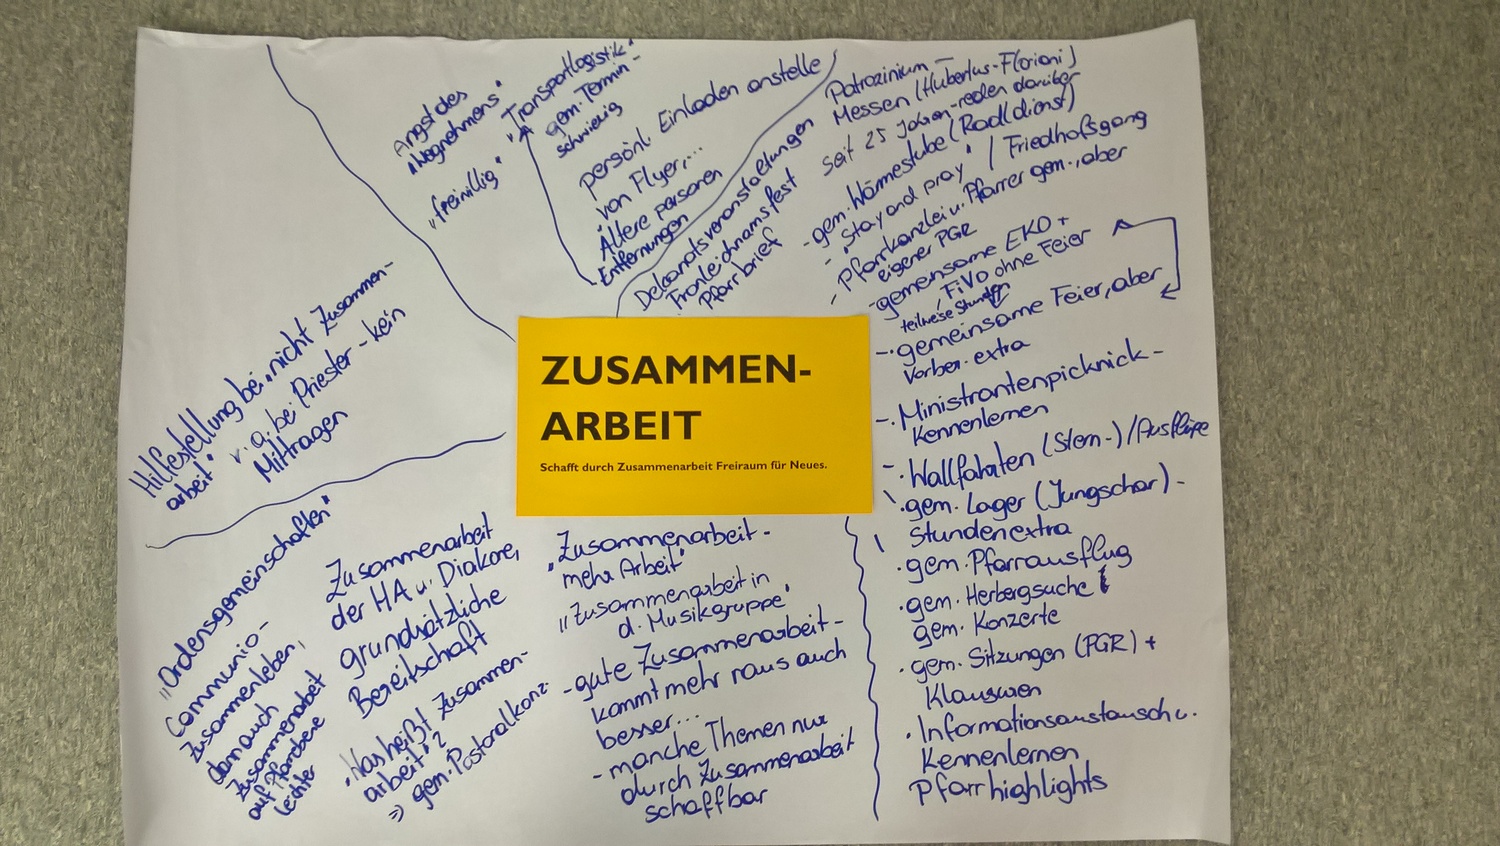 ZUSAMMEN-
ARBEIT
Schafft durch Zusammenarbeit Freiraum für Neues.
Angst des
"Wegnehmens"
"freiwillig"
"Transportlogistik"
gem. Termin -
schwierig
persönl. Einladen anstelle
von Flyer,...
Ältere Personen
Entfernungen
Dekanatsveranstaltungen
Fronleichnamsfest
Pfarrbrief
Patrozinium -
Messen (Hubertus-Floriani)
seit 25 Jahren - reden darüber
- gem. Wärmestube (Radldienst)
- "Stay and pray" / Friedhofsgang
- Pfarrkanzlei u. Pfarrer gem., aber
eigener PGR
- gemeinsame EKO +
FiVo ohne Feier
teilweise Stunden
-. gemeinsame Feier, aber
Vorber. extra
-. Ministrantenpicknick -
Kennenlernen
-. Wallfahrten (Stern-) / Ausflüge
. gem. Lager (Jungschar) -
Stunden extra
. gem. Pfarrausflug
. gem. Herbergsuche
gem. Konzerte
. gem. Sitzungen (PGR) +
Klausuren
. Informationsaustausch u.
Kennenlernen
Pfarrhighlights
Hilfestellung bei "nicht Zusammen-
arbeit"
v. a. bei Priester - kein
Mittragen
"Ordensgemeinschaften"
Communio -
Zusammenleben,
dann auch
Zusammenarbeit
auf Pfarrebene
leichter
Zusammenarbeit
der HA u. Diakone,
grundsätzliche
Bereitschaft
"Was heißt Zusammen-
arbeit"?
=> gem. Pastoralkonz.
"Zusammenarbeit -
mehr Arbeit"
"Zusammenarbeit in
d. Musikgruppe"
- gute Zusammenarbeit -
kommt mehr raus auch
besser...
- manche Themen nur
durch Zusammenarbeit
schaffbar